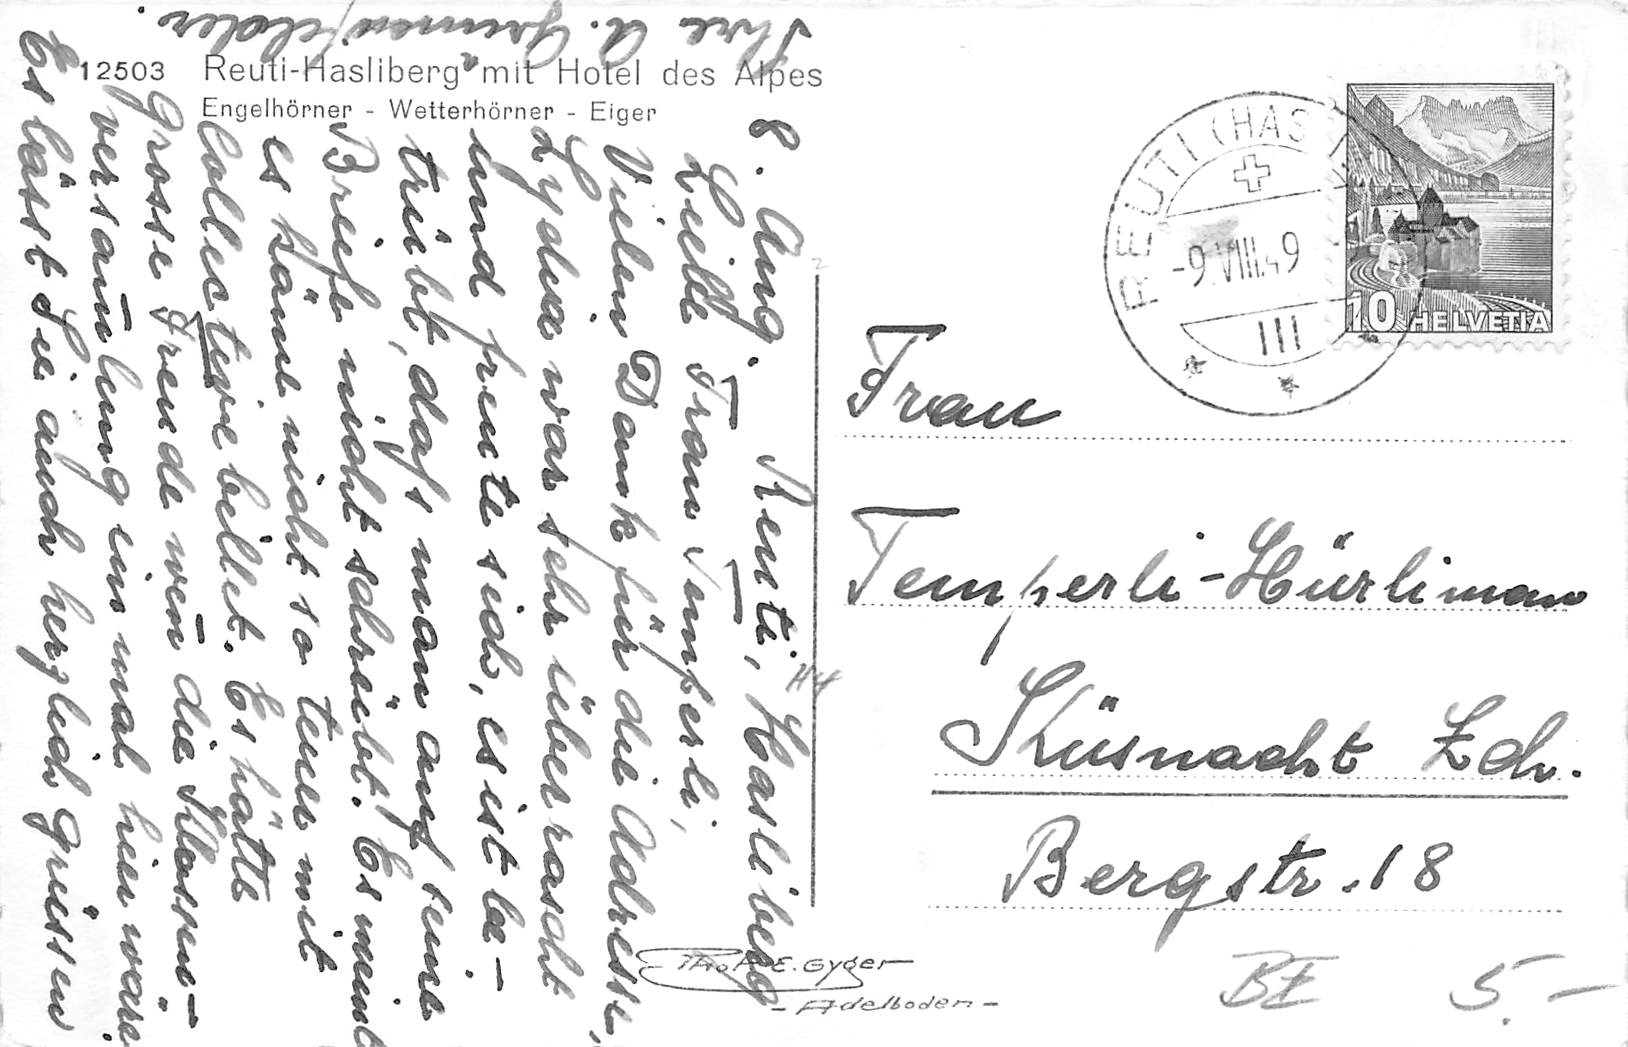 12503 Reuti-Hasliberg mit Hotel des Alpes
Engelhörner - Wetterhörner - Eiger
8. Aug. Reuti, Hasliberg
Liebe Frau Temperli,
Vielen Dank für die Adresse,
Lydia war sehr überrascht
und freute sich, es ist be-
trübt, dass man auf seine
Briefe nicht schreibt. Es meint
es käme nicht so teuer mit
Collectivebillet. Es hätte
grosse Freude wen̄ die Klassen-
versam̄lung einmal hier wäre
Es lässt Sie auch herzlich grüssen
Ihre A.
REUTI (HAS
-9.VIII.49
III
10 HELVETIA
Frau
Temperli-Hürliman
Küsnacht Zch.
Bergstr. 18
Phot. E. Gyger
- Adelboden -
BE 5.-